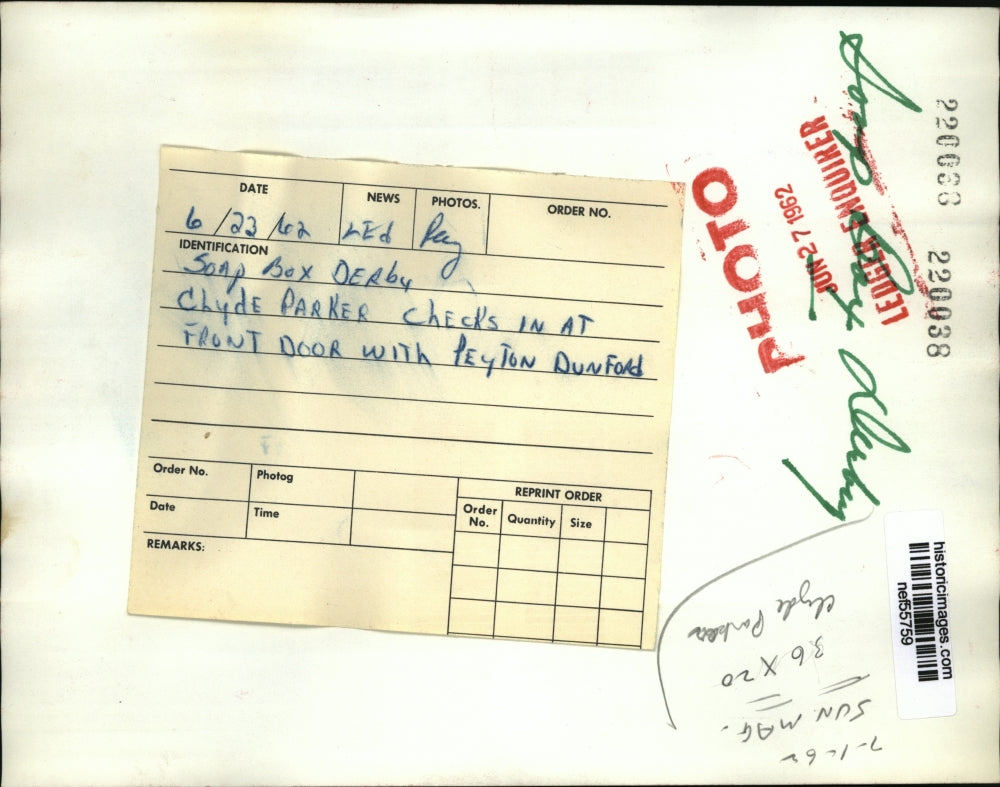 DATE NEWS PHOTOS. ORDER NO.
6/23/62 LEd Ray
IDENTIFICATION
SOAP BOX DERBy
CLyDE PARKER CHECKS IN AT
FRONT DOOR WITH PEyTON DUNFORd
Order No. Photog
Date Time
REMARKS:
REPRINT ORDER
Order No. Quantity Size
PHOTO
JUN 27 1962
LEDGER ENQUIRER
Soap Box Derby
220038 220038
historicimages.com
nef55759
Clyde Parker
36 X 20
SUN MAG.
7-1-62